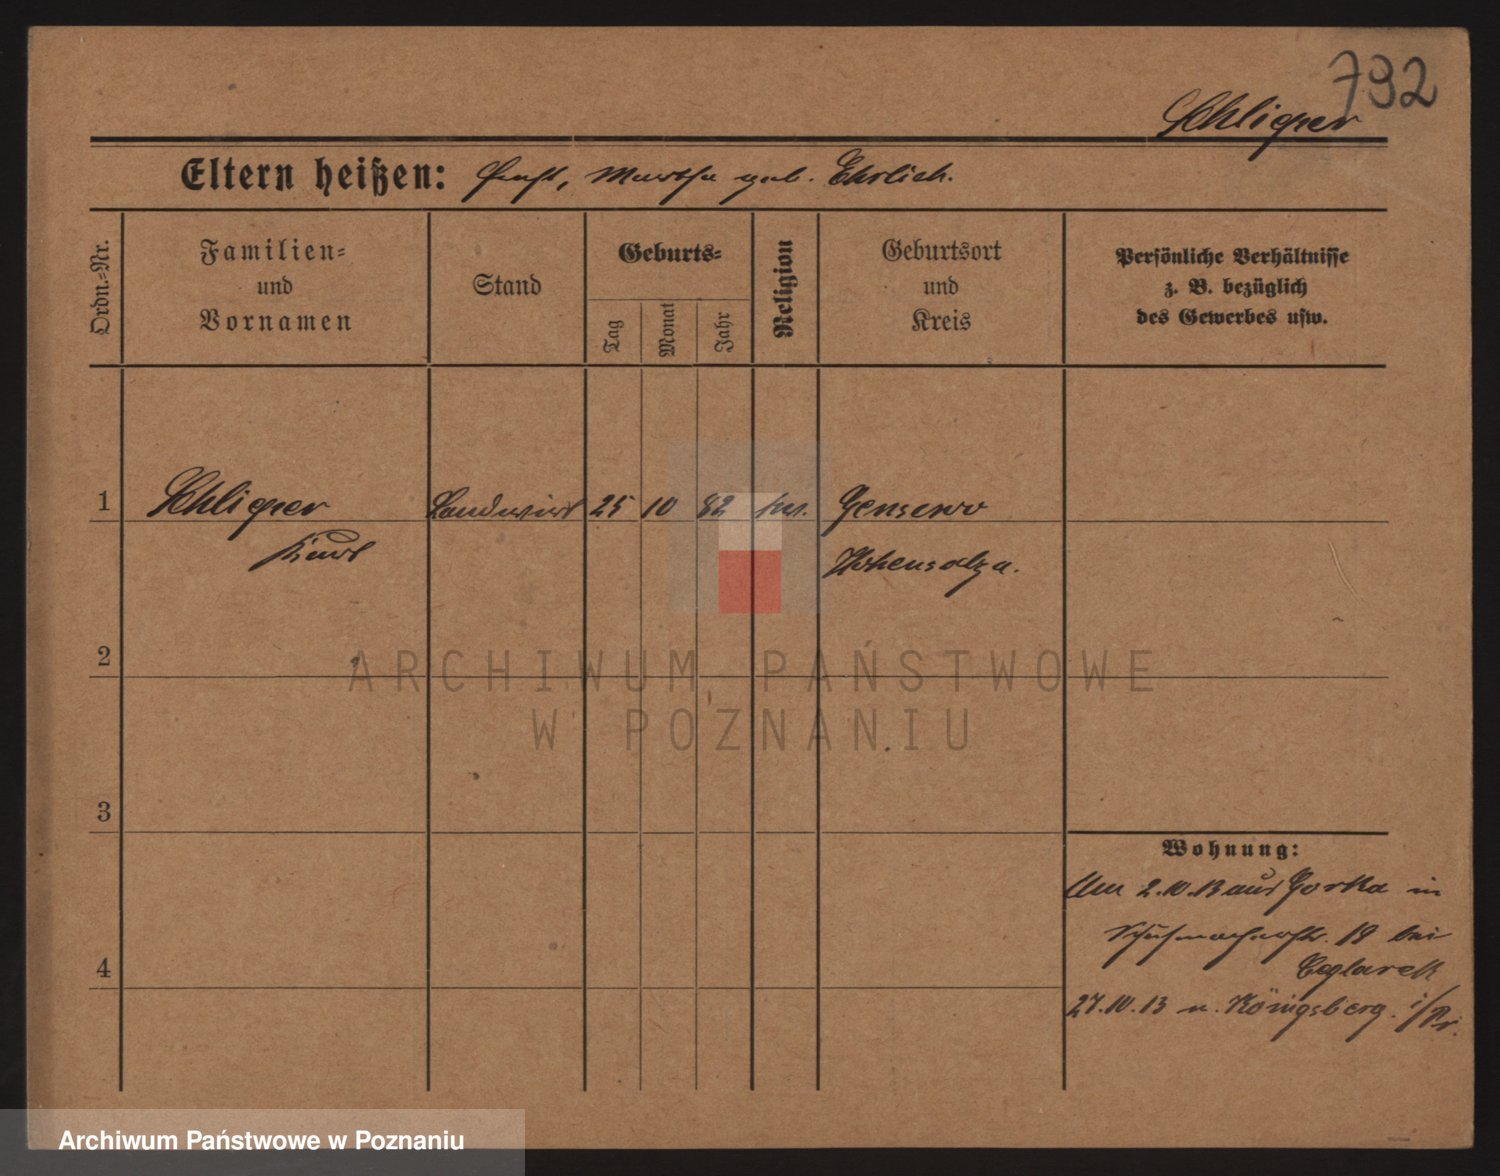 792
Schlieper
Eltern heißen: Martha geb. Ehrlich.
Ordn.-Nr.
Familien-
und
Vornamen
Stand
Geburts-
Tag
Monat
Jahr
Religion
Geburtsort
und
Kreis
Persönliche Verhältnisse
z. B. bezüglich
des Gewerbes usw.
1 Schlieper Landwirt 25 10 82
Kurt Hohensalza.
2
ARCHIWUM PAŃSTWOWE
W POZNANIU
3
Wohnung:
Am 2.10.13 aus Gorka in
Schuhmacherstr. 18 bei
4
Ceglarek
27.10.13 n. Königsberg i/Pr.
Archiwum Państwowe w Poznaniu